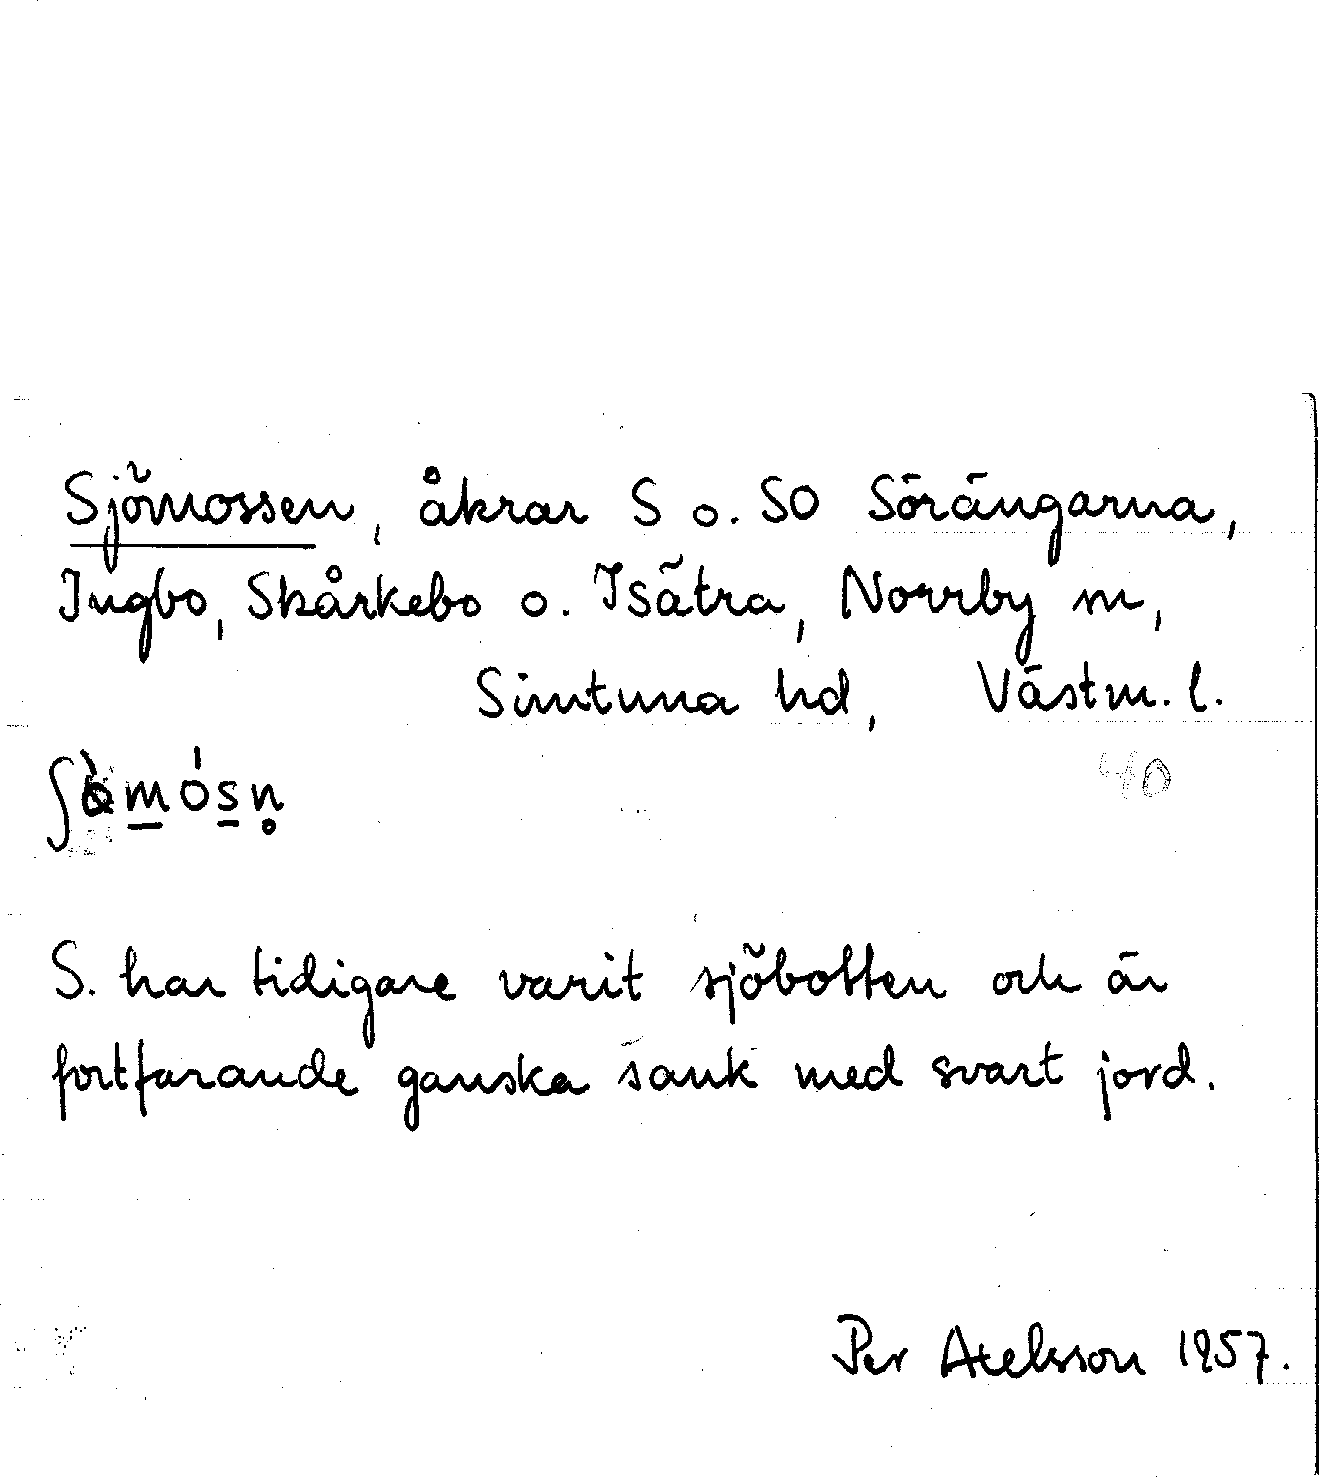 Sjömossen, åkrar S o. SO Sörängarna,
Ingbo, Skårkebo o. Isätra, Norrby sn,
Simtuna hd, Västm. l.
40
S. har tidigare varit sjöbotten och är
fortfarande ganska sank med svart jord.
Per Axelsson 1957.